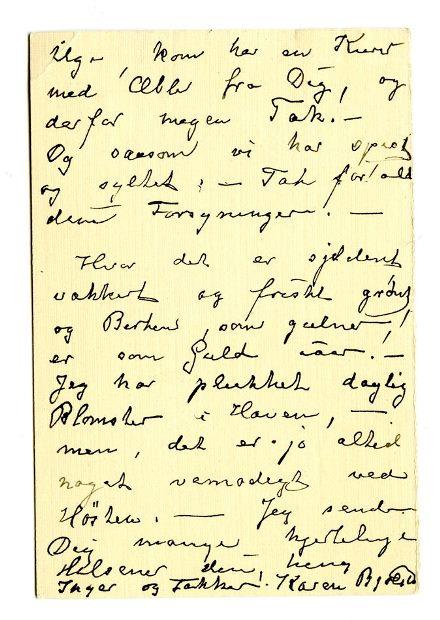 Uge, kom her en Kurv
med Æbler fra Dig, og
derfor megen Tak. —
Og saasom vi har spist
og syltet! — Tak for alle
dem Forsyningern. —
Hvor det er sjeldent
vakkert og friskt grønt
og Berken, som gulner,
er som Guld iaar. —
Jeg har plukket daglig
Blomster i Haven, —
men, det er jo altid
noget vemodigt ved
Høsten. — Jeg sender
Dig mange hjertelige
Hilsener din heng
Inger og Takker! Karen